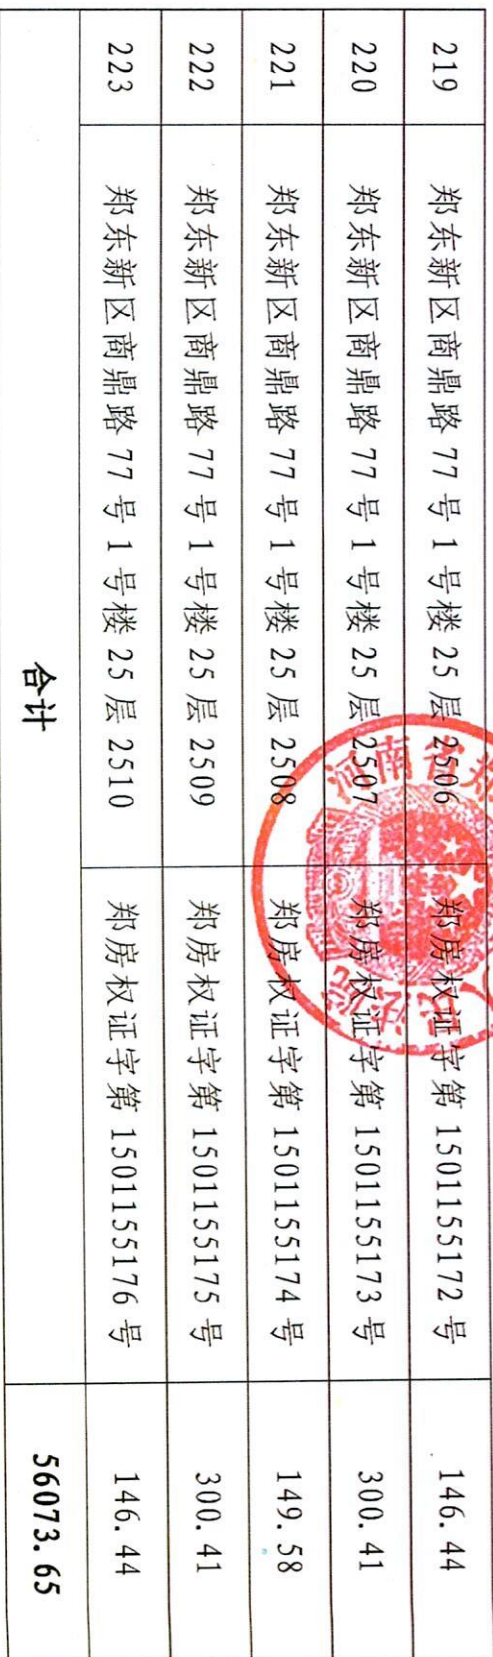 219 郑东新区商鼎路 77 号 1 号楼 25 层 2506 郑房权证字第 1501155172 号 146.44
220 郑东新区商鼎路 77 号 1 号楼 25 层 2507 郑房权证字第 1501155173 号 300.41
221 郑东新区商鼎路 77 号 1 号楼 25 层 2508 郑房权证字第 1501155174 号 149.58
222 郑东新区商鼎路 77 号 1 号楼 25 层 2509 郑房权证字第 1501155175 号 300.41
223 郑东新区商鼎路 77 号 1 号楼 25 层 2510 郑房权证字第 1501155176 号 146.44
合计 56073.65
河南省郑
人民法院